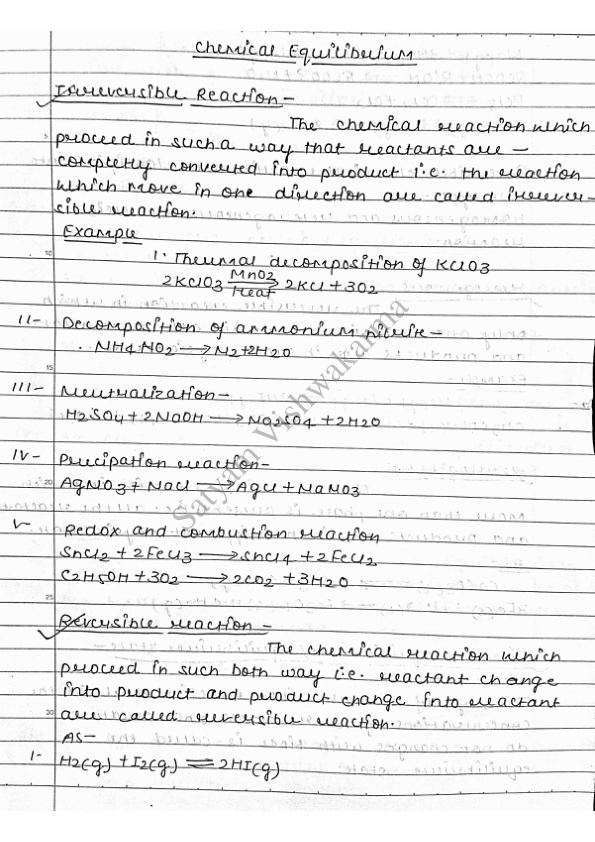 Chemical Equilibrium
Irreversible Reaction -
The chemical reaction which
proceed in such a way that reactants are -
completly converted into product i.e. the reaction
which move in one direction are called irrever-
sible reaction.
Example
10
1. Thermal decomposition of KClO3
2KClO3 MnO2 Heat ⟶ 2KCl + 3O2
II- Decomposition of ammonium nitrite -
NH4NO2 ⟶ N2+2H2O
15
III- Neutralization -
H2SO4 + 2NaOH ⟶ Na2SO4 + 2H2O
IV- Precipation reaction -
20 AgNO3 + NaCl ⟶ AgCl + NaNO3
V- Redox and combustion reaction
SnCl2 + 2FeCl3 ⟶ SnCl4 + 2FeCl2
C2H5OH + 3O2 ⟶ 2CO2 + 3H2O
25
Reversible reaction -
The chemical reaction which
proceed in such both way i.e. reactant change
into product and product change into reactant
30 are called reversible reaction.
AS-
I- H2(g) + I2(g) ⇌ 2HI(g)
Satyam Vishwakarma